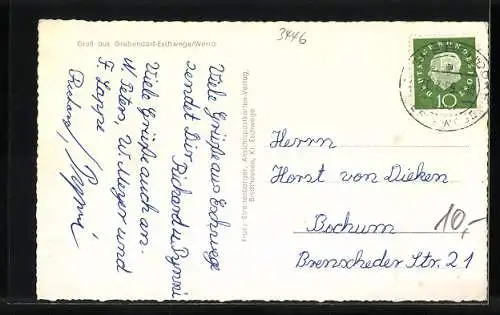 Gruß aus Grebendorf-Eschwege/Werra
3446
Viele Grüße aus Eschwege
sendet Dir Richard u.
Viele Grüße auch an
W. Peters, W. Meyer und
F. Lappe
Richard,
Ansichtspostkarten-Verlag,
Kr. Eschwege
DEUTSCHE BUNDESPOST
10
Herrn
Horst von Dieken
Bochum
Brenscheder Str. 21
10,-